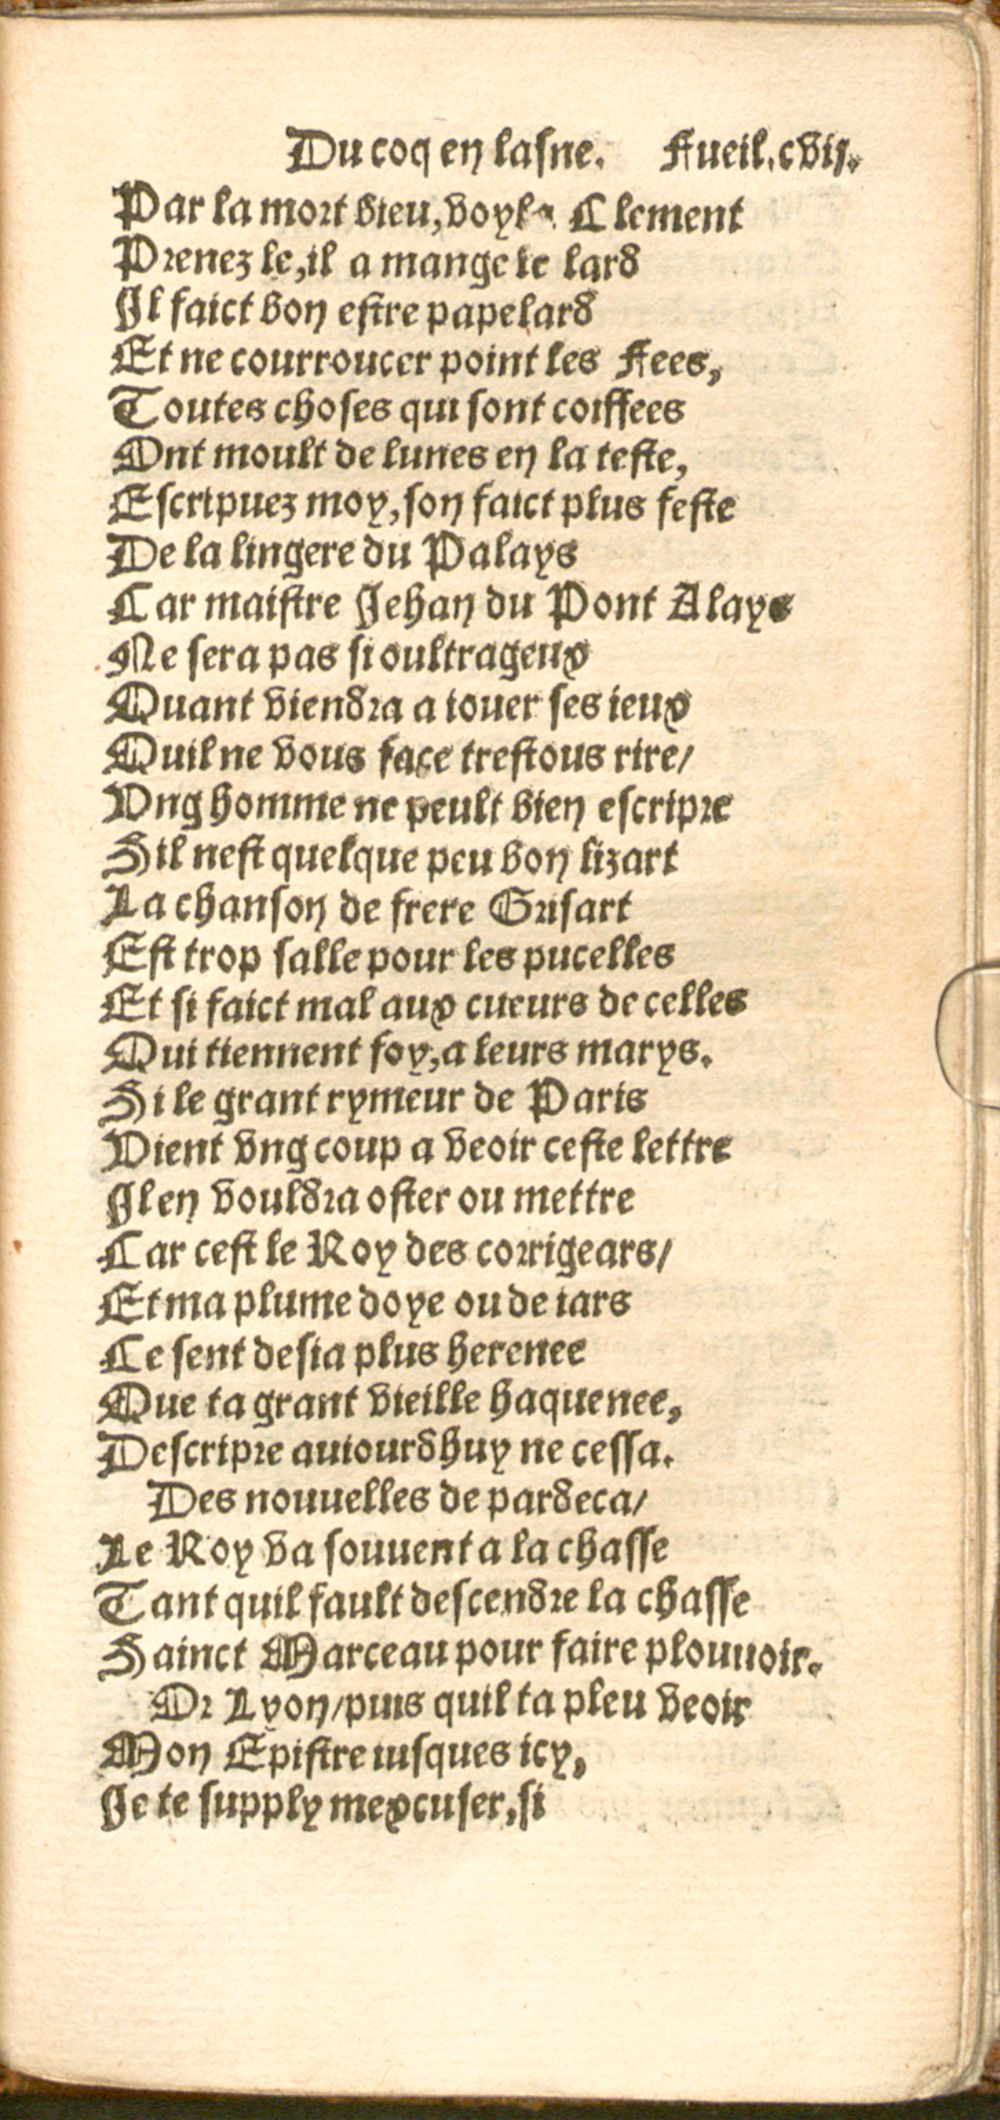 Du coq en lasne. Fueil.cvij.
Par la mort bieu, voyla Clement
Prenez le, il a mange le lard
Il faict bon estre papelard
Et ne courroucer point les Fees,
Toutes choses qui sont coiffees
Ont moult de lunes en la teste,
Escripuez moy, son faict plus feste
De la lingere du Palays
Car maistre Jehan du Pont Alays
Ne sera pas si oultrageux
Quant viendra a iouer ses ieux
Quil ne vous face trestous rire/
Ung homme ne peult bien escripre
Sil nest quelque peu bon lizart
La chanson de frere Grisart
Est trop salle pour les pucelles
Et si faict mal aux cueurs de celles
Qui tiennent foy, a leurs marys.
Si le grant rymeur de Paris
Vient vng coup a veoir ceste lettre
Il en vouldra oster ou mettre
Car cest le Roy des corrigears/
Et ma plume doye ou de iars
Ce sent desia plus herenee
Que ta grant vieille haquenee,
Descripre auiourdhuy ne cessa.
Des nouuelles de pardeca/
Le Roy va souuent a la chasse
Tant quil fault descendre la chasse
Sainct Marceau pour faire plouuoir.
Or Lyon/puis quil ta pleu veoir
Mon Epistre iusques icy,
Je te supply mexcuser, si